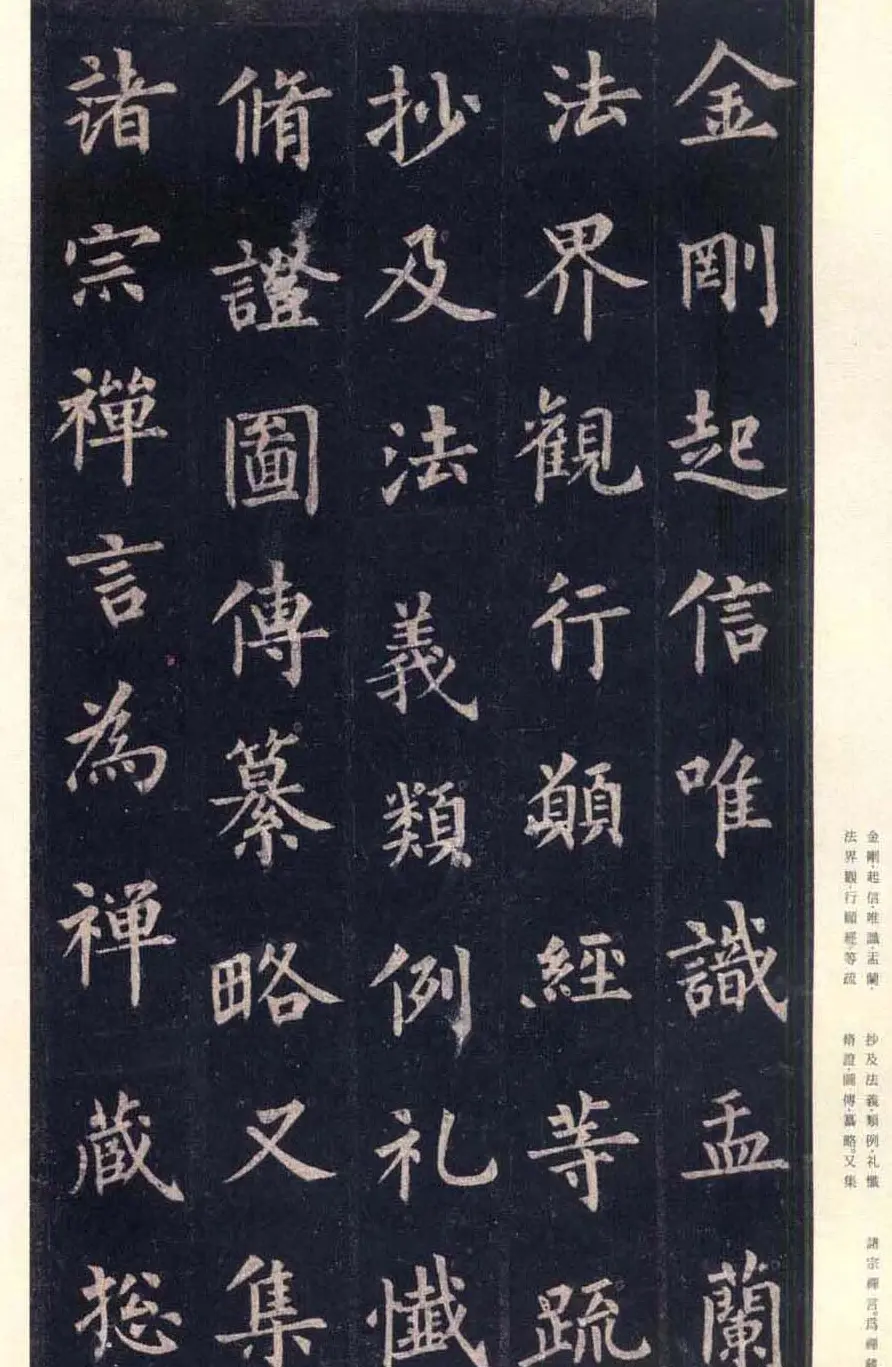 金剛起信唯識盂蘭
法界觀行願經等疏
抄及法義類例礼懺
脩證圖傳纂略又集
諸宗禪言為禪蔵揔
金剛·起信·唯識·盂蘭·
法界觀·行願經·等疏
抄及法義·類例·礼懺
脩證·圖傳·纂略。又集
諸宗禪言。爲禪